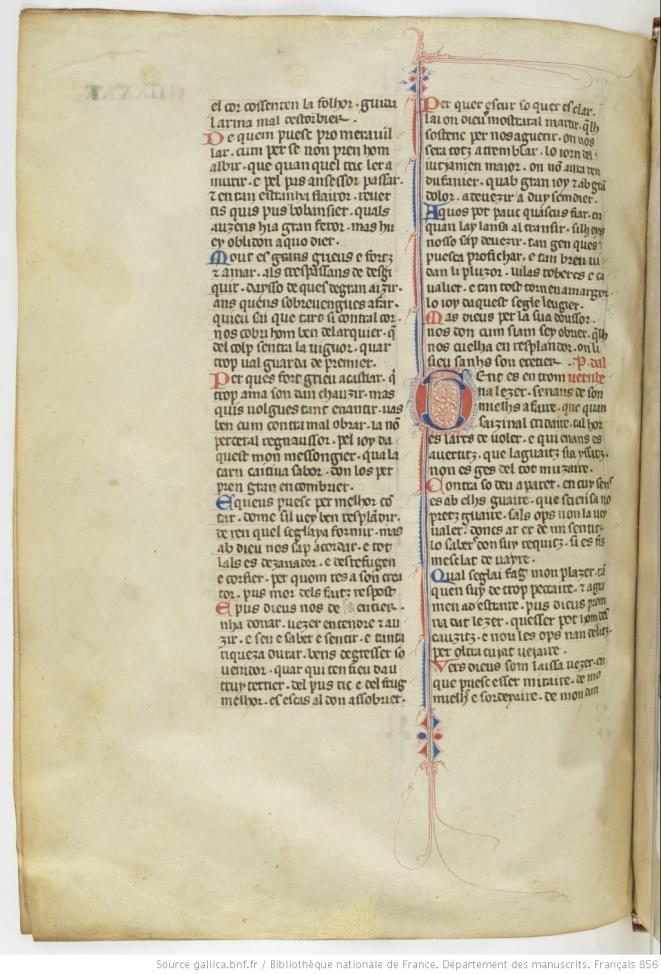 el cor cossenten la folhor · guida
larma mal
De quem puesc pro meravil
lar · cum per se non pren hom
albir · que quan quel tric
murir · e pel pas passar ·
& en tan estranha flairor ·
tis quis pus bobansier · quals
auzens hia gran fetor · mas hu
ey oblidon aquo dier ·
Mout es grans grieus e fortz
& amar · als trespassans de
quir · daysso de ques degran
ans quens sobrevengues afar ·
quieu sai que tart si contral cor
nos cobri hom ben delarquier · q̄
del colp sentra la viguor · quar
trop val guarda de premier ·
Per ques fort grieu · q̄
trop ama son dan chauzir · mas
quis volgues tant enantir · vas
ben cum contral mal obrar · la nō
perceral regnaussor · pel ioy da
quest mon messongier · qua la
carn caitiva sabor · don los per
pren gran encombrier ·
E quieus puesc per melhor cō
tar · dome sil vey ben resplādir ·
de ren quel seglaya fornir · mas
ab dieu nos sap acordar · e tot
lals es dezanador · e
e corsier · per quom a son crea
tor · pus mor dels faitz
E pus dieus nos de entier
nha donar · vezer entendre & au
zir · e sen e saber e sentir · e tanta
riqueza durar · bens degresser so
vendor · quar qui ten fieu dau
truy terrier · del pus ric e del frug
melhor · es escas al don assobrier ·
Per quer escur so quer esclar ·
lai on dieu mostraral martir · q̄lh
sostenc per nos a guerir · on nos
sera totz a tremblar · lo iorn del
iutjamen maior · on nō aura ren
dufanier · quab gran ioy & ab grā
dolor · a devezir a duy semdier ·
A quos pot pauc quascus fiar · en
quan lay lansa al transir · silh eys
nosso sap devezir · tan gen ques
puesca profichar · e tan breu iu
dan li pluzor · vilas e ca
valier · e tan tost torn en amargor
lo ioy daquest segle leugier ·
Mas dieus per la sua doussor ·
nos don cum siam sey obrier · q̄lh
nos cuelha en resplandor · on li
sieu sanhs son ·: P· dal
vernhe
Gent es entrom
na lezer · senans de son
mielhs a faire · que quan
· tal hor
es laires de voler · e qui enans es
avertitz · que
non es ges del tot muzaire ·
Contra so deu aparer · en cuy sens
es ab elhs guaire · que sciensa no
pretz guaire · sals ops non la vol
valer · doncs ar er de mi sentitz
lo saber don suy requitz · si es fis
mesclat de vayre ·
Qual seglai fag mon plazer · tā
quen suy de trop peccaire · & agra
men ad estaire · pus dieus prem
na dat lezer · quesser pot hom des
cauzitz · e nou les ops nan
per oltra cujat vejaire ·
Vers dieus som laissa vezer · en
que puesc esser miraire · de mo
mielh e sordejaire · de mon dan
Source gallica.bnf.fr / Bibliothèque nationale de France. Département des manuscrits. Français 856